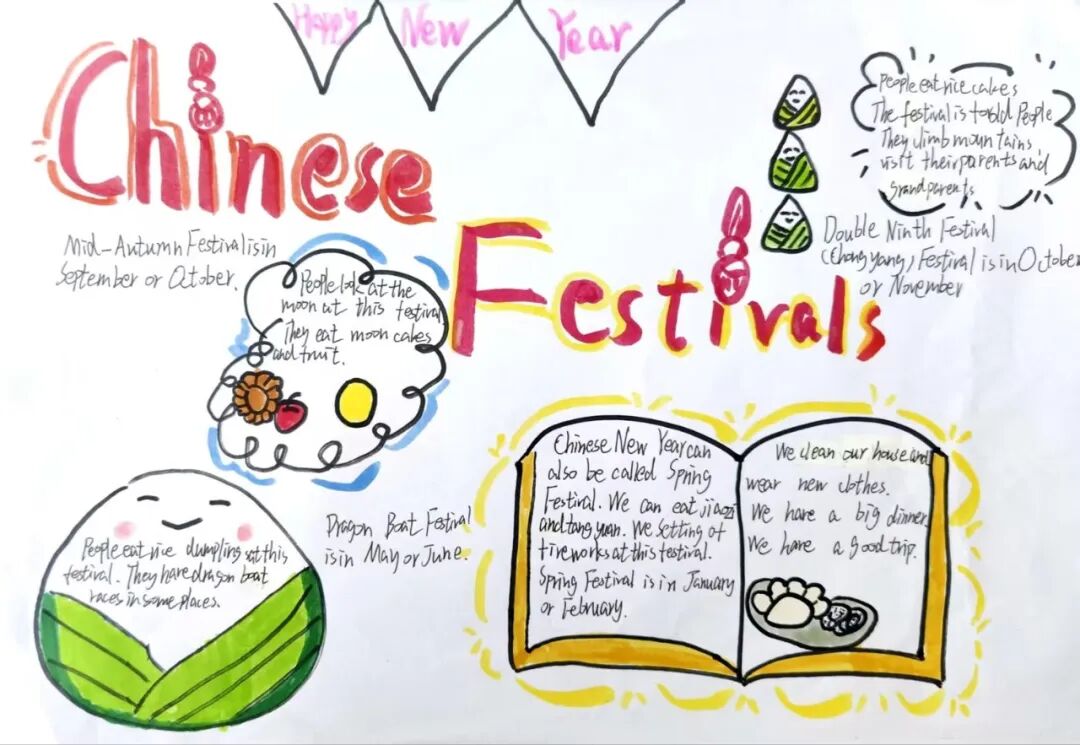 Happy New Year
Chinese
Festivals
People eat rice cakes
The festival is to old People
They climb mountains,
visit their parents and
grandparents
Double Ninth Festival
(Chong yang) Festival is in October
or November
Mid-Autumn Festival is in
September or October.
People look at the
moon at this festival
They eat moon cakes
and fruit.
Dragon Boat Festival
is in May or June.
People eat rice dumplings at this
festival. They have dragon boat
races in some places.
Chinese New Year can
also be called Spring
Festival. We can eat jiaozi
and tang yuan. We setting of
fireworks at this festival.
Spring Festival is in January
or February.
We clean our house and
wear new clothes.
We have a big dinner.
We have a good trip.